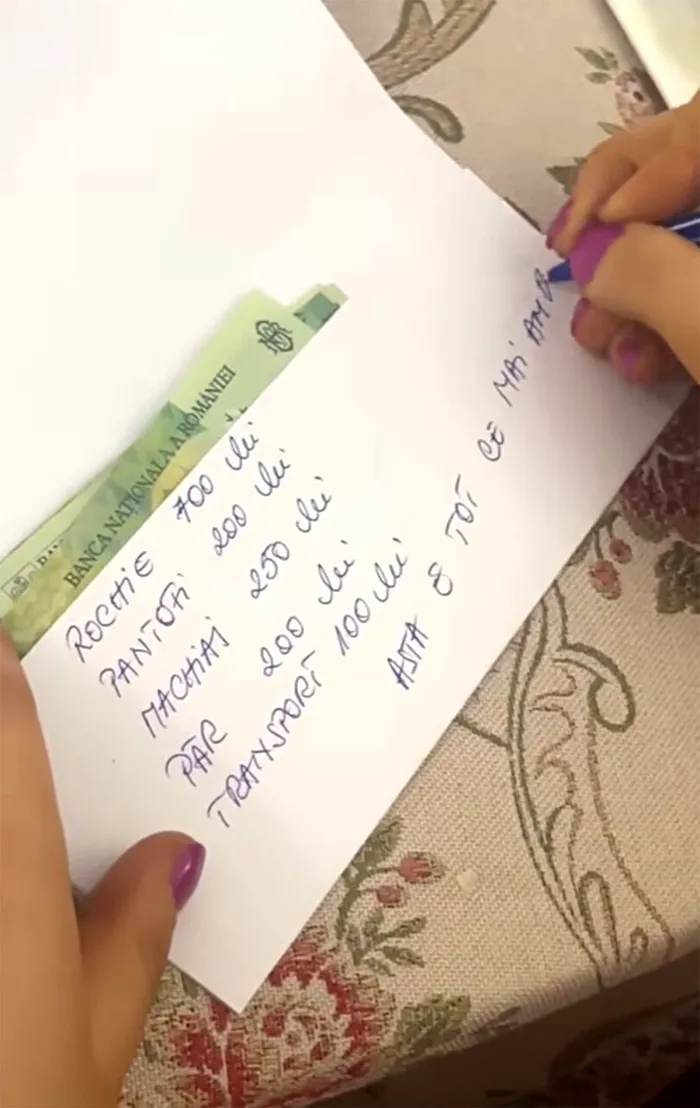 BANCA NAȚIONALĂ A ROMÂNIEI
ROCHIE 700 lei
PANTOFI 200 lei
MACHIAJ 250 lei
PĂR 200 lei
TRANSPORT 100 lei
ASTA E TOT CE MAI AM